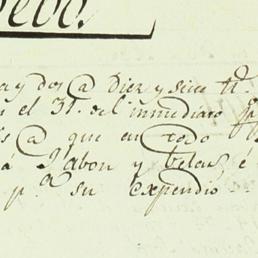 Sebo.
a y dos @ Diez y seis
n el 31. del inmediato
@ que en todo
á Jabon y belas, é
p.ª su expendio